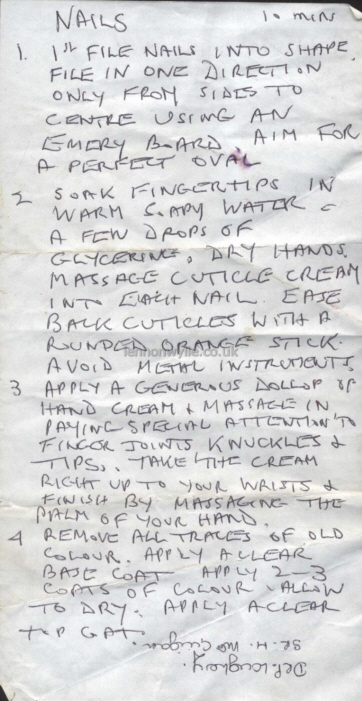 NAILS 10 MINS
1. 1ST FILE NAILS INTO SHAPE.
FILE IN ONE DIRECTION
ONLY FROM SIDES TO
CENTRE USING AN
EMERY BOARD AIM FOR
A PERFECT OVAL
2 SOAK FINGERTIPS IN
WARM SOAPY WATER
A FEW DROPS OF
GLYCERINE, DRY HANDS.
MASSAGE CUTICLE CREAM
INTO EACH NAIL. EASE
BACK CUTICLES WITH A
ROUNDED ORANGE STICK.
lennonwylie.co.uk
AVOID METAL INSTRUMENTS.
3 APPLY A GENEROUS DOLLOP OF
HAND CREAM & MASSAGE IN
PAYING SPECIAL ATTENTION TO
FINGER JOINTS KNUCKLES &
TIPS. TAKE THE CREAM
RIGHT UP TO YOUR WRISTS &
FINISH BY MASSAGING THE
PALM OF YOUR HAND.
4 REMOVE ALL TRACES OF OLD
COLOUR. APPLY A CLEAR
BASE COAT APPLY 2-3
COATS OF COLOUR. ALLOW
TO DRY. APPLY A CLEAR
TOP COAT.